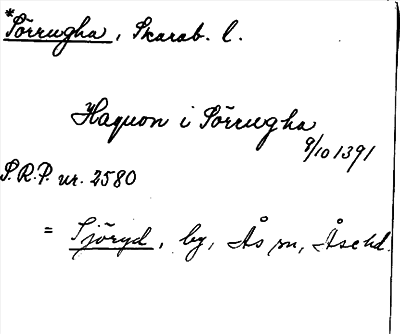 *Sörrugha, Skarab. l.
Haquon i Sörrugha
9/10 1391
S.R.P. nr. 2580
= Sjöryd, by, Ås sn, Åse hd.